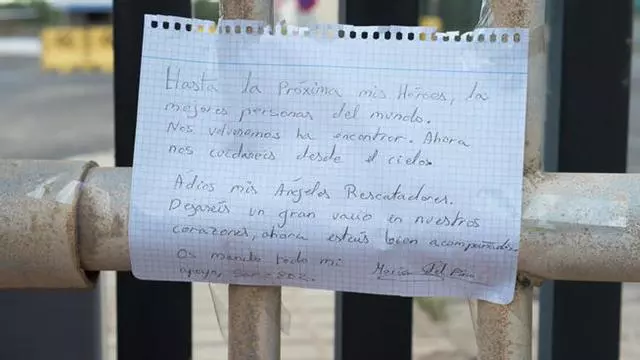 Hasta la Próxima mis Héroes, la
mejores personas del mundo.
Nos volveremos ha encontrar. Ahora
nos cuidareis desde el cielo.
Adios mis Ángeles Rescatadores.
Dejareis un gran vacio en nuestros
corazones, ahora estais bien acompañados.
Os mando todo mi
apoyo,
Maria Del